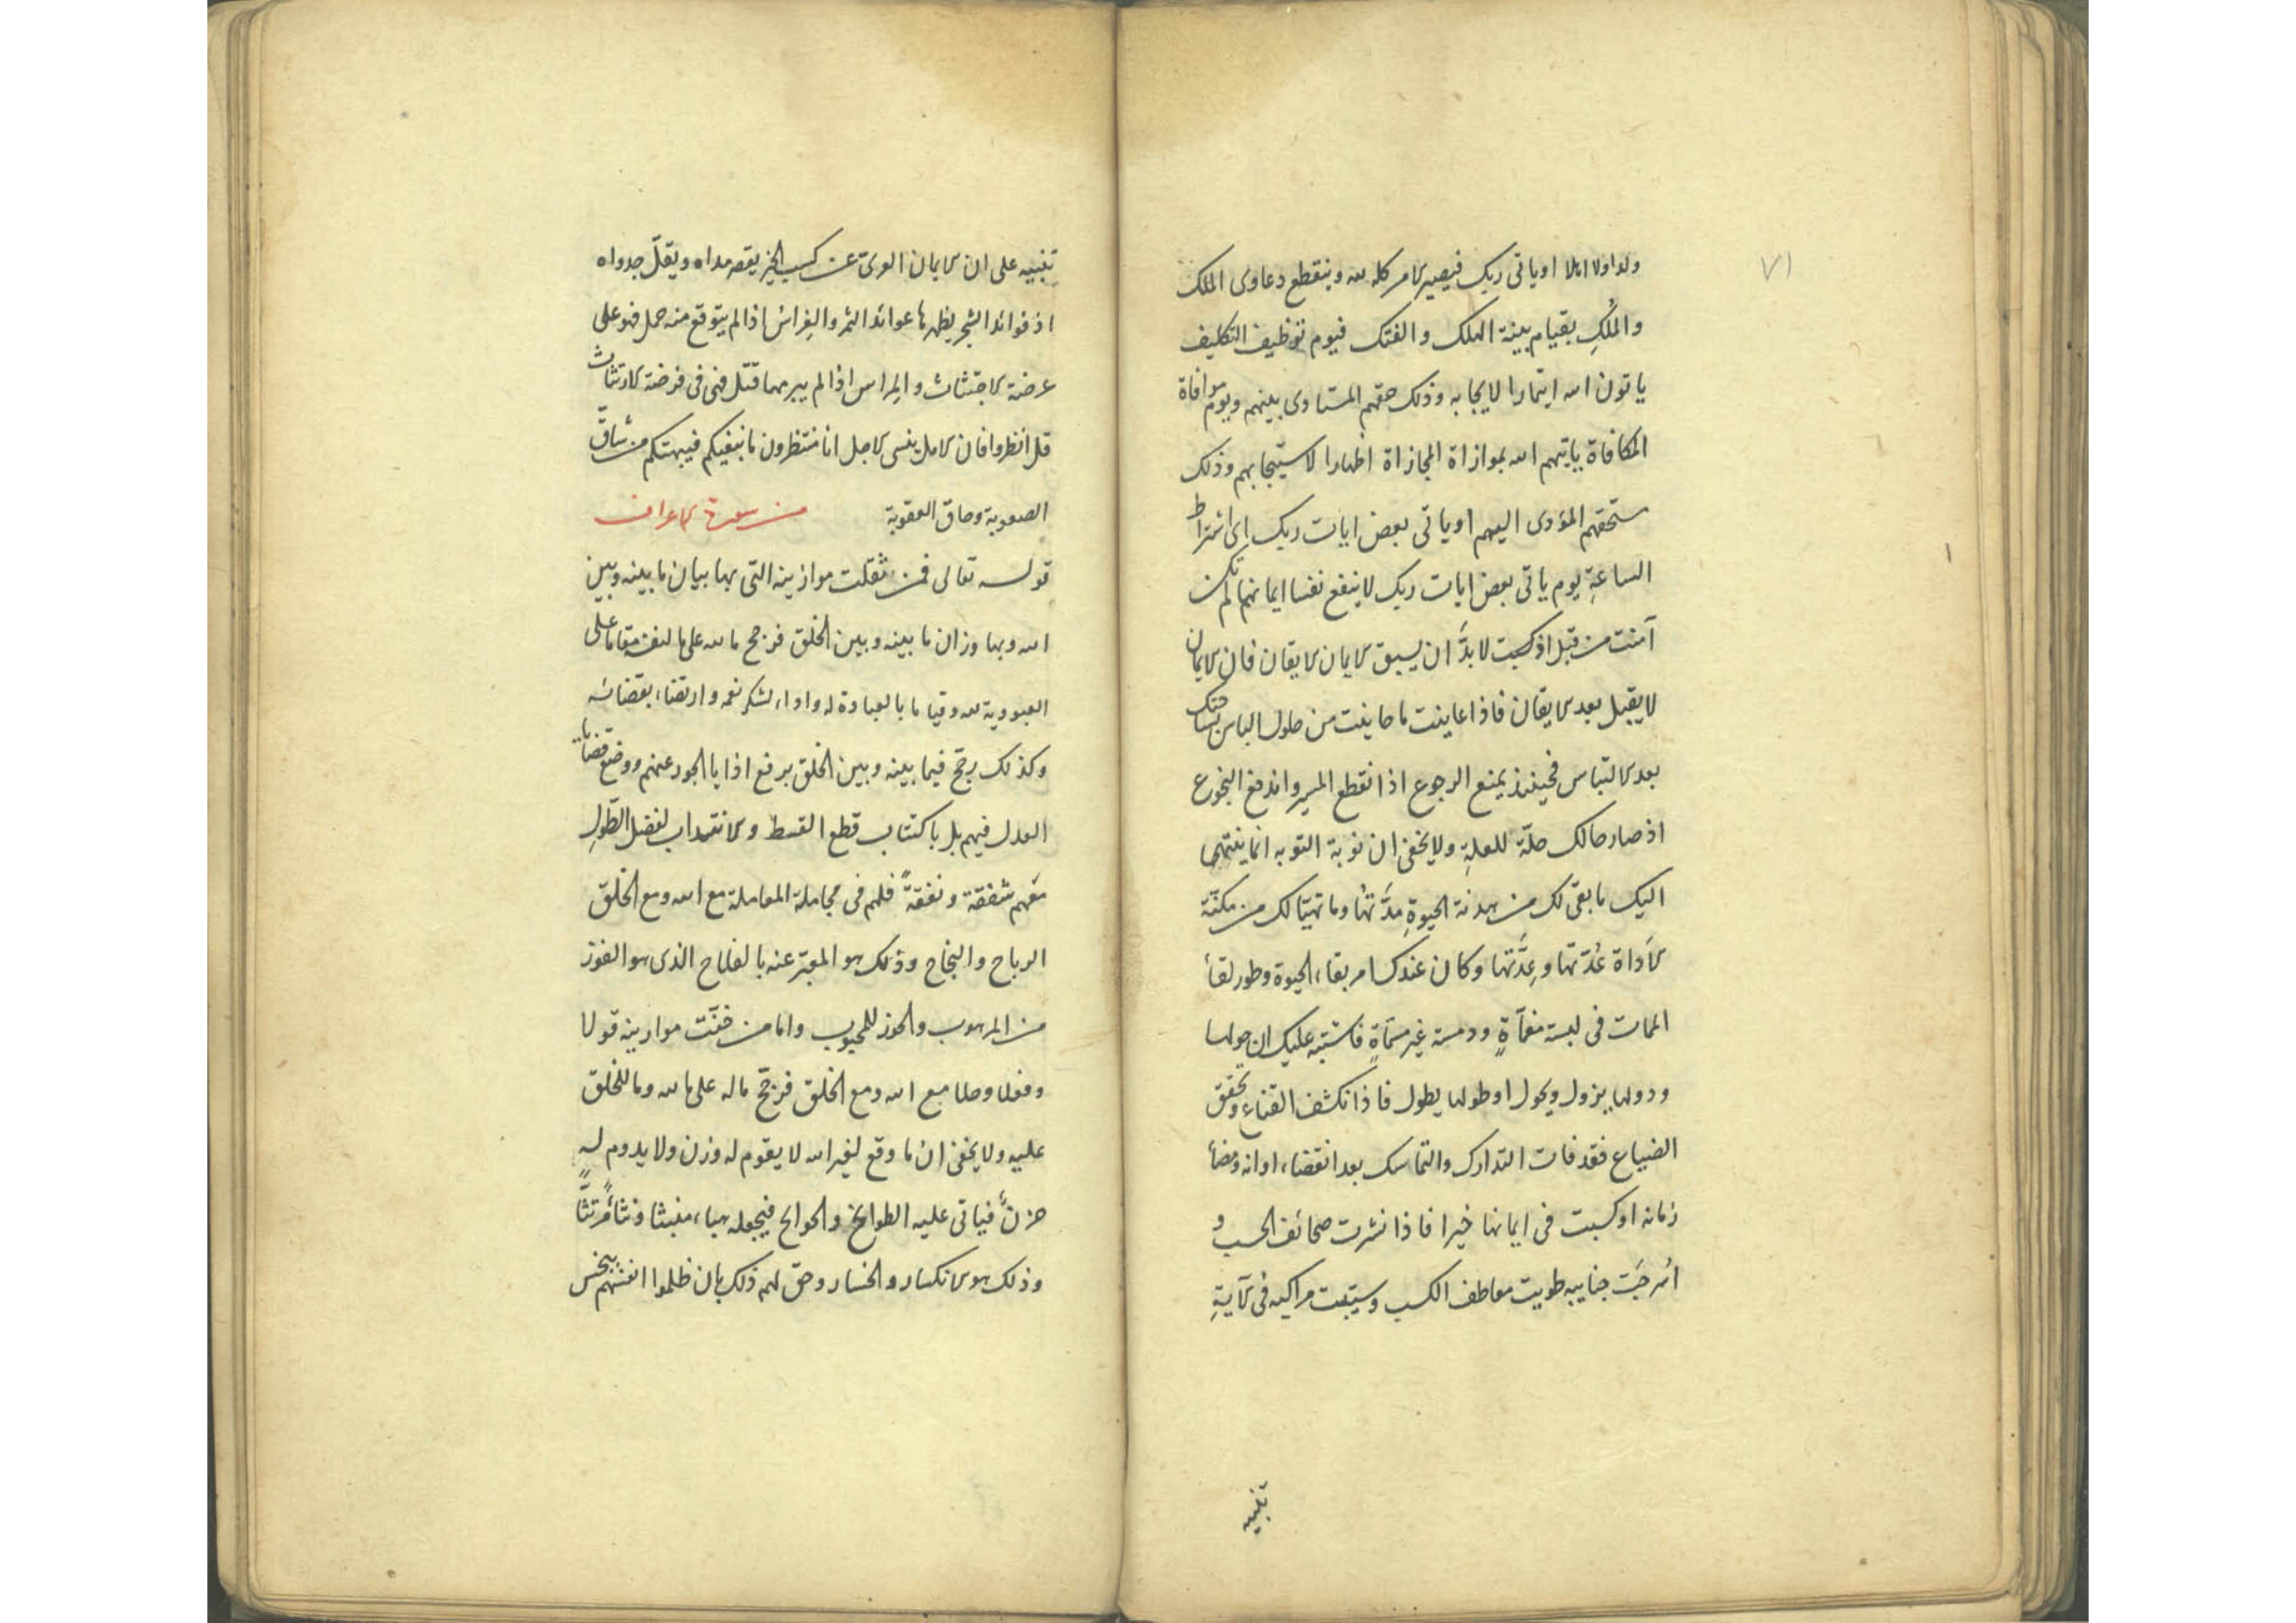 ٧١
او ياتى ربك فيصير الامر كله لله وينقطع دعاوى الملك
والمُلكِ بقيام بينة الهلك والفتك فيوم توظيف التكليف
ياتون الله ايتمارا لايجابه وذلك حقهم المستاوى بينهم ويوم موافاة
المكافاة ياتيهم الله بموازاة المجازاة اظهارا لاستيجابهم وذلك
ستحقهم المؤدى اليهم او ياتى بعض ايات ربك اى اشتراط
الساعةِ يوم ياتى بعض ايات ربك لا ينفع نفسا ايمانهما لم تكن
آمنت من قبل اذ كسبت لا بدَّ ان يسبق الايمان الايقان فان الايمان
لا يقبل بعد الايقان فاذا عاينت ما عاينت من حلول الباس
بعد الالتباس فحينئذ يمنع الرجوع اذا انقطع المسير واندفع النجوع
اذ صار حالك حلّة للعلةِ ولا يخفى ان نوبة التوبه انما ينتهى
اليك ما بقى لك من هدنة الحيوةِ مدَّتها وما تهيّا لك من مكنة
الاَداة عُدّتها وعِدَّتها وكان عندك امر بقاء الحيوة وطور لقاء
الممات فى لبسة مغمآةٍ ودمسة غير مسمّاةٍ فاشتبه عليك ان حولها
ودولها يزول ويحول او طولها يطول فاذا نكشف القناع وتحقق
الضياع فقد فات التدارك والتماسك بعد انقضاء اوانه ومضاء
زمانه او كسبت فى ايمانها خيرا فاذا نشرت صحائف الحسب و
اُسرجَت جنايبه طويت معاطف الكسب وسيّبت مراكبه فى الآيةِ
تنبيه
تنبيه على ان الايمان العرىّ عن كسب الخير يقصر مداه ويقلّ جدواه
اذ فوائد الشجر يظهرها عوائد الثمر والغِراس اذا لم يتوقع منه حمل فهو على
عرضة الاجتثاث والمِراس اذا لم يبرمها فتل فهى فى فرضة الارتثاث
قل انظروا فان الامل ينسى الاجل انا منتظرون ما نبغيكم فيبهتكم من شاقّ
الصعوبة وحاق العقوبة من سورة الاعراف
قوله تعالى فمن ثقلت موازينه التى بها بيان ما بينه وبين
الله وبها وزان ما بينه وبين الخلق فرجح ما لله على ما لنفسه مقاما على
العبودية لله وقياما بالعبادة له واداء لشكر نعمه وارتضاء بقضائه
وكذلك رجّح فيما بينه وبين الخلق برفع اذايا الجور عنهم ووضع قضايا
العدل فيهم بل باكتتاب قطع القسط والانتداب لفضل الطَولِ
معهم شفقة ونفقةً فلهم فى مجاملة المعاملة مع الله ومع الخلق
الرباح والنجاح وذلك هو المعبّر عنه بالفلاح الذى هو الفوز
من المرهوب والحوز للمحبوب واما من خفّت موازينه قولا
وفعلا وحالا مع الله ومع الخلق فرجّح ما له على ما لله وما للخلق
عليه ولا يخفى ان ما وقع لغير الله لا يقوم له وزن ولا يدوم له
حزن فياتى عليه الطوايح والجوايح فيجعله هباء منبثا
وذلك هو الانكسار والخسار وحق لهم ذلك بان ظلموا انفسهم ببخس